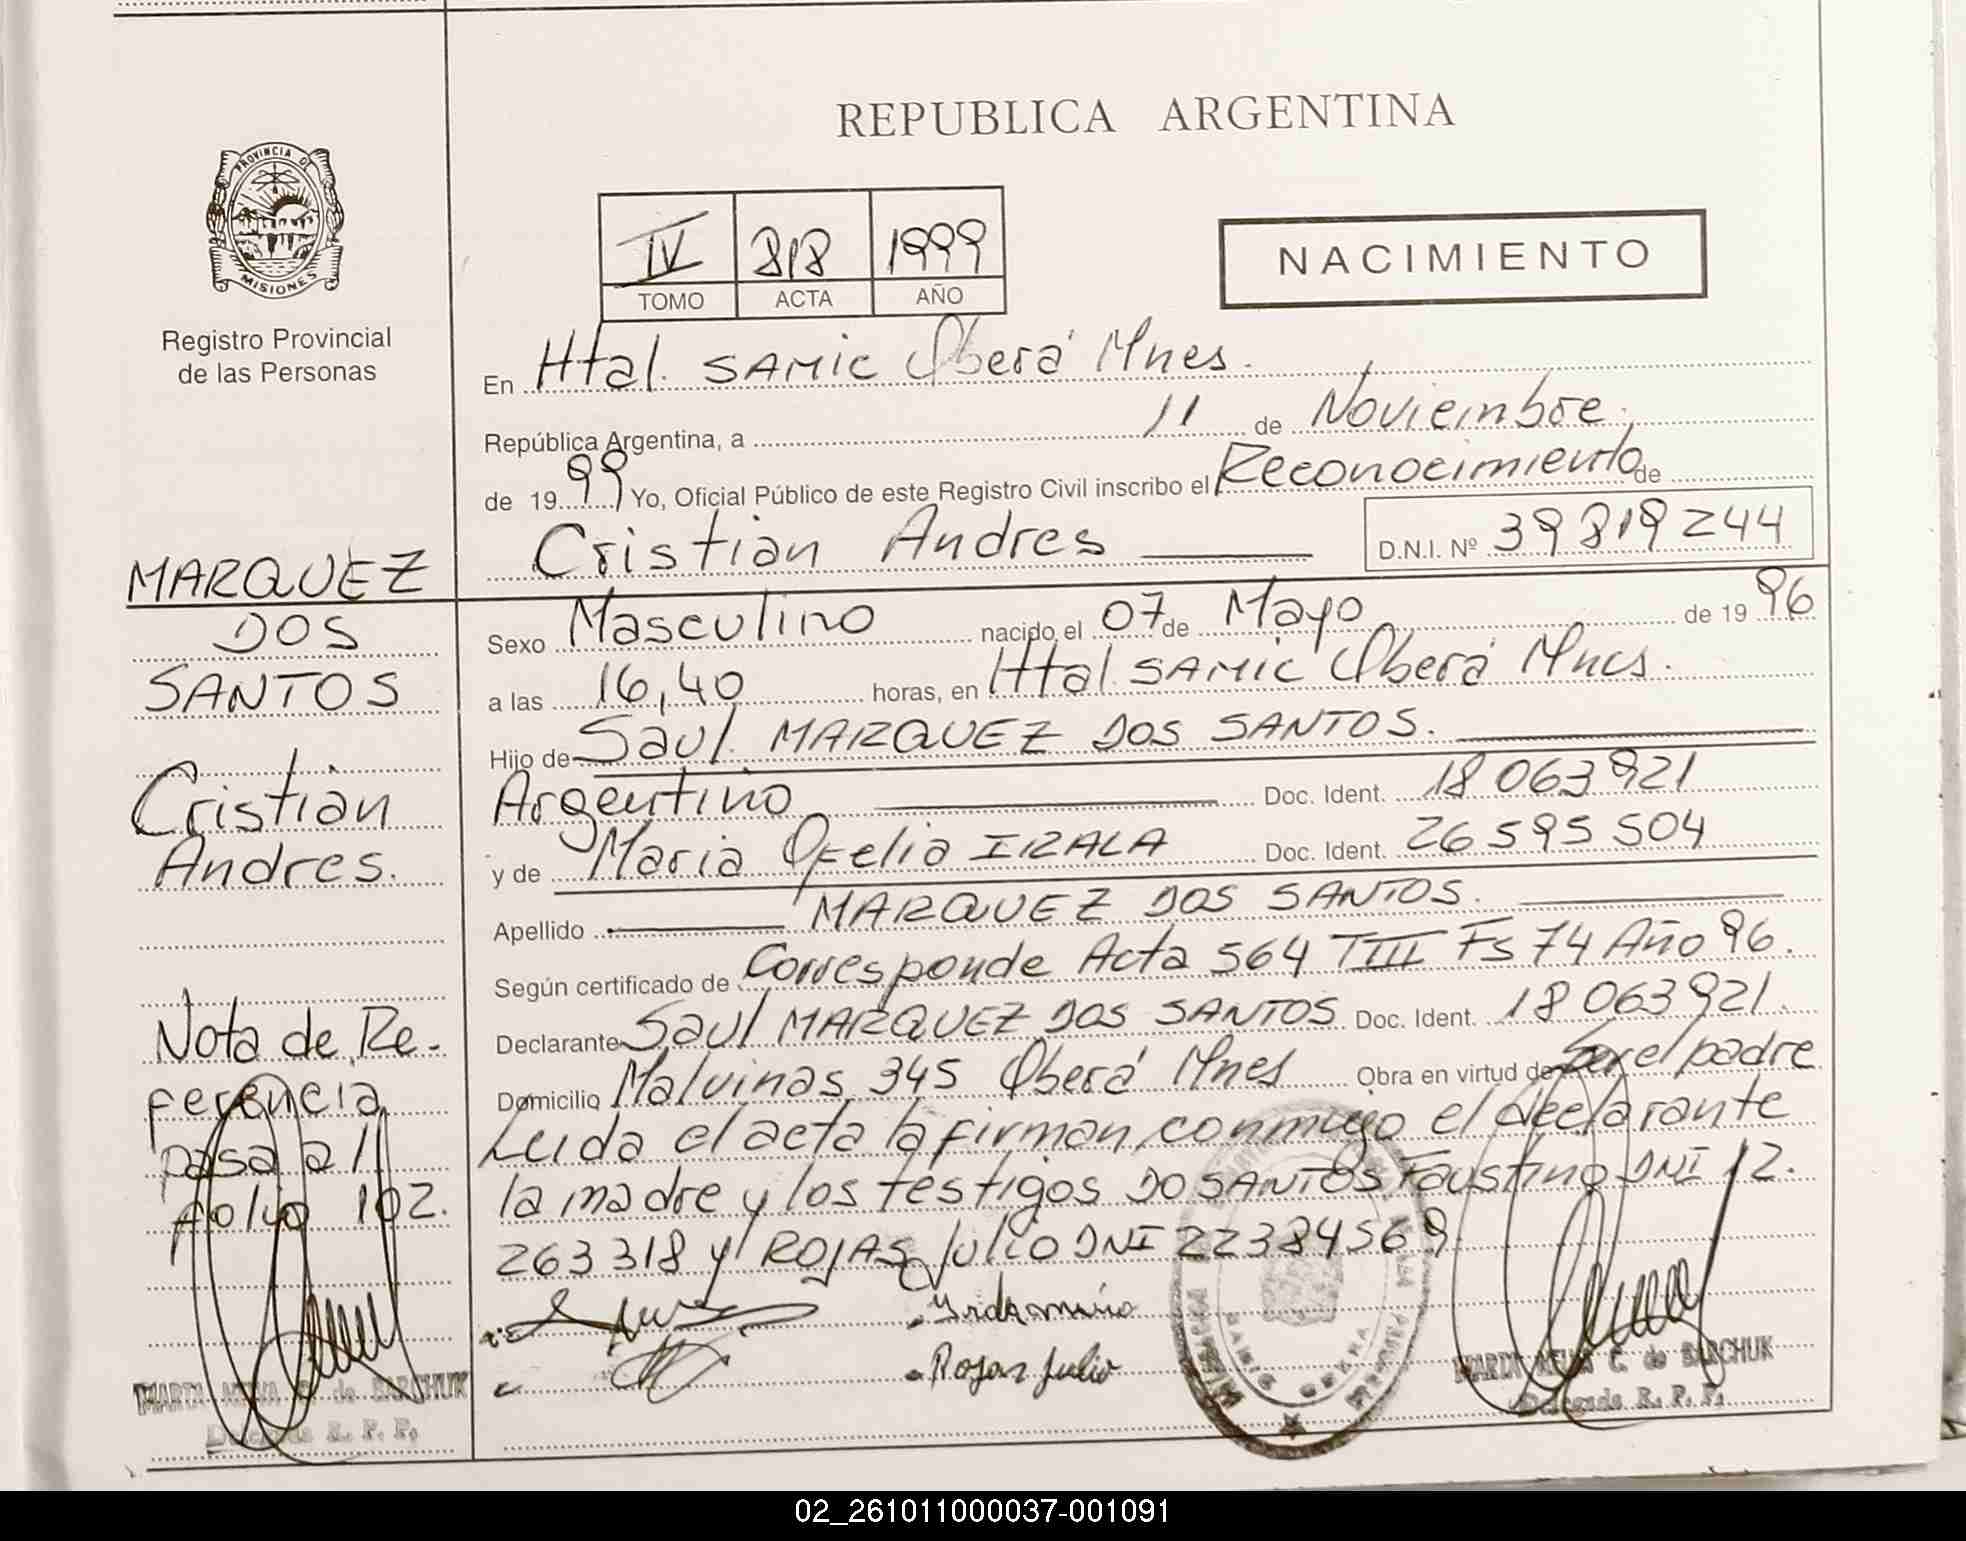 REPUBLICA ARGENTINA
PROVINCIA DE
MISIONES
Registro Provincial
de las Personas
IV 818 1999
TOMO ACTA AÑO
NACIMIENTO
En Htal. SAMIC Oberá Mnes.
República Argentina, a 11 de Noviembre.
de 1999 Yo, Oficial Público de este Registro Civil inscribo el Reconocimiento de
Cristian Andres D.N.I. Nº 39 819 244
MARQUEZ
DOS
SANTOS
Cristian
Andres.
Sexo Masculino nacido el 07 de Mayo de 19 96
a las 16,40 horas, en Htal SAMIC Oberá Mnes.
Hijo de Saul. MARQUEZ DOS SANTOS.
Argentino Doc. Ident. 18 063 921
y de Maria Ofelia IRALA Doc. Ident. 26 595 504
Apellido MARQUEZ DOS SANTOS.
Según certificado de Corresponde Acta 564 TIII Fs 74 Año 96.
Declarante Saul MARQUEZ DOS SANTOS Doc. Ident. 18 063 921.
Domicilio Malvinas 345 Oberá Mnes Obra en virtud de Ser el padre
Leida el acta la firman conmigo el declarante
la madre y los testigos DO SANTOS Faustino DNI 12.
263 318 y ROJAS Julio DNI 22384569
Rojas Julio
Nota de Re-
ferencia
pasa al
folyo 102.
MARTA C. de BARCHUK
Delegada R. P. P.
MARTA C. de BARCHUK
Delegada R. P. P.
02_261011000037-001091